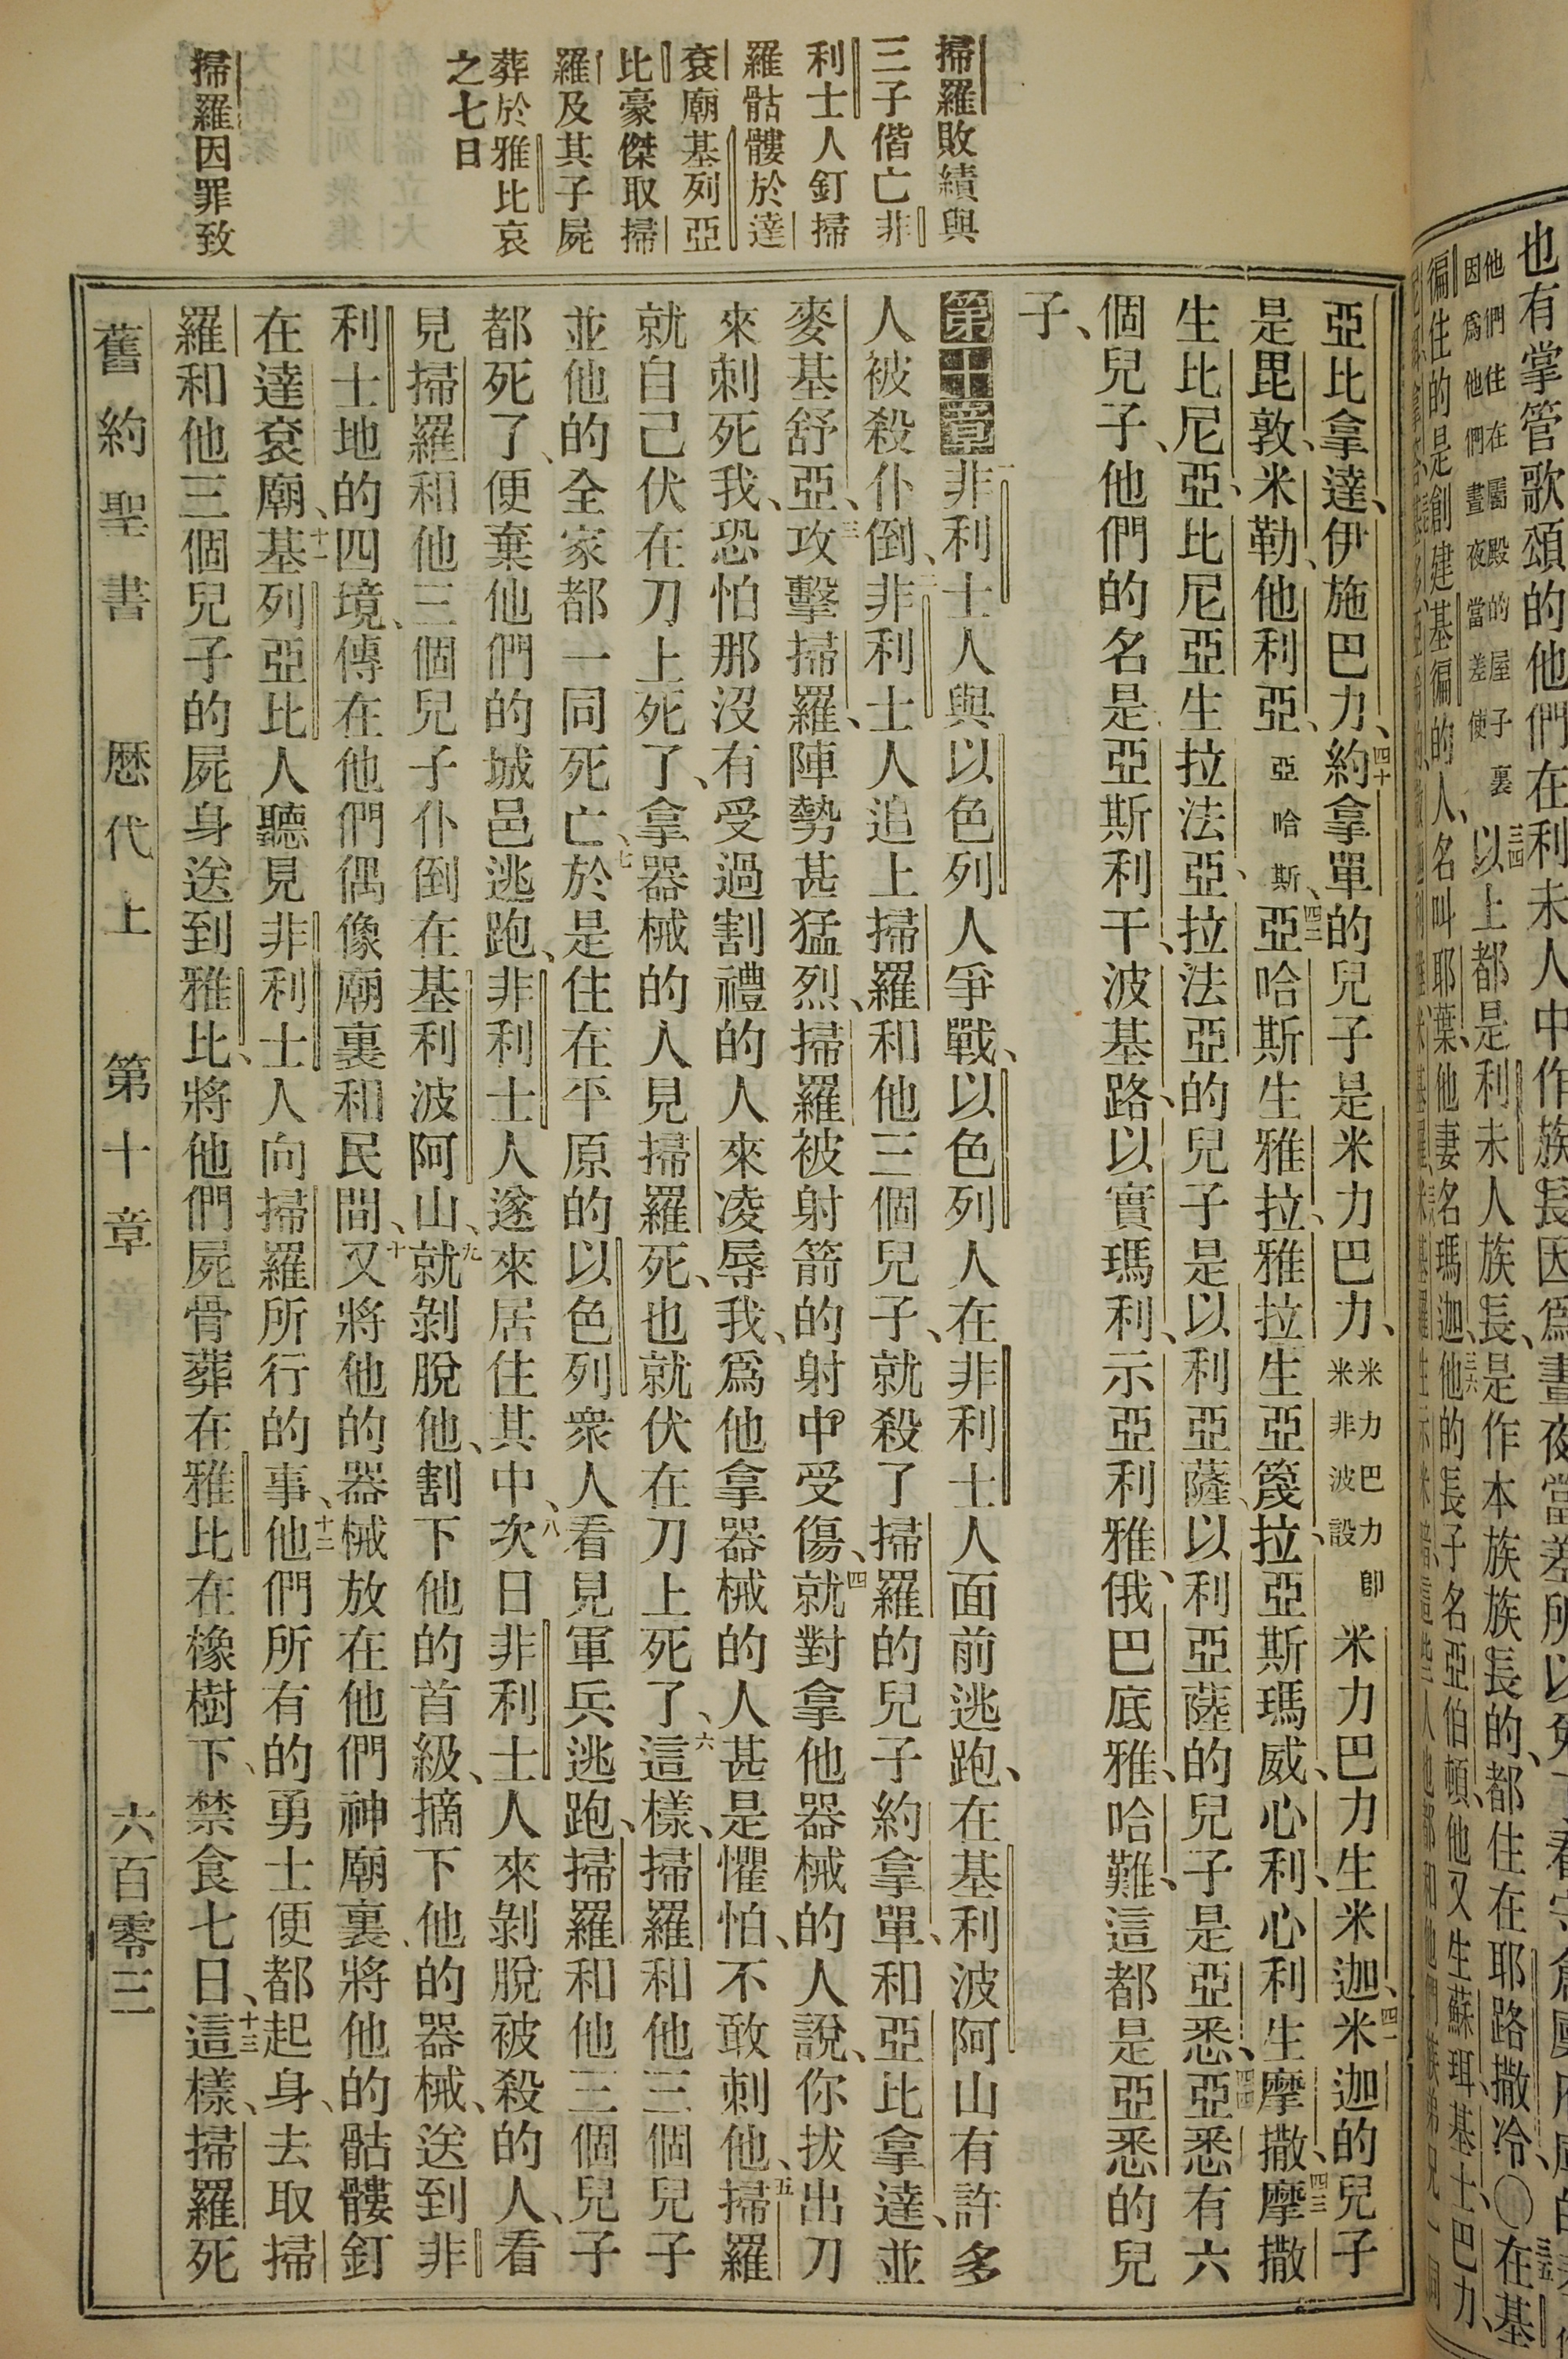 也有掌管歌頌的他們在利未人中作族長因爲晝夜當差所以
他們住在屬殿的屋子裏
因爲他們晝夜當差使
以上都是利未人族長、是作本族族長的、都住在耶路撒冷、〇在基
徧住的是創建基徧的人、名叫耶葉、他妻名瑪迦、他的長子名亞伯頓、他又生蘇珥、基士、巴力、
掃羅敗績與
三子偕亡非
利士人釘掃
羅骷髏於達
袞廟基列亞
比豪傑取掃
羅及其子屍
葬於雅比哀
之七日
掃羅因罪致
亞比拿達、伊施巴力、四十約拿單的兒子是米力巴力、米力巴力卽米非波設米力巴力生米迦、四一米迦的兒子
是毘敦、米勒、他利亞、亞哈斯、四二亞哈斯生雅拉、雅拉生亞篾拉、亞斯瑪威、心利、心利生摩撒、四三摩撒
生比尼亞、比尼亞生拉法亞、拉法亞的兒子是以利亞薩、以利亞薩的兒子是亞悉、四四亞悉有六
個兒子、他們的名是亞斯利干、波基路、以實瑪利、示亞利雅、俄巴底雅、哈難、這都是亞悉的兒
子、
第十章一非利士人與以色列人爭戰、以色列人在非利士人面前逃跑、在基利波阿山有許多
人被殺仆倒、二非利士人追上掃羅和他三個兒子、就殺了掃羅的兒子約拿單、和亞比拿達、並
麥基舒亞、三攻擊掃羅、陣勢甚猛烈、掃羅被射箭的射中受傷、四就對拿他器械的人說、你拔出刀
來刺死我、恐怕那沒有受過割禮的人來凌辱我、爲他拿器械的人甚是懼怕、不敢刺他、五掃羅
就自己伏在刀上死了、拿器械的人見掃羅死、也就伏在刀上死了、六這樣、掃羅和他三個兒子
並他的全家都一同死亡、七於是住在平原的以色列衆人看見軍兵逃跑、掃羅和他三個兒子
都死了、便棄他們的城邑逃跑、非利士人遂來居住其中、八次日非利士人來剝脫被殺的人、看
見掃羅和他三個兒子仆倒在基利波阿山、九就剝脫他、割下他的首級、摘下他的器械、送到非
利士地的四境、傳在他們偶像廟裏和民間、十又將他的器械放在他們神廟裏、將他的骷髏釘
在達袞廟、十一基列亞比人聽見非利士人向掃羅所行的事、十二他們所有的勇士便都起身、去取掃
羅和他三個兒子的屍身送到雅比、將他們屍骨葬在雅比在橡樹下、禁食七日、十三這樣、掃羅死
舊約聖書 歷代上 第十章 六百零三